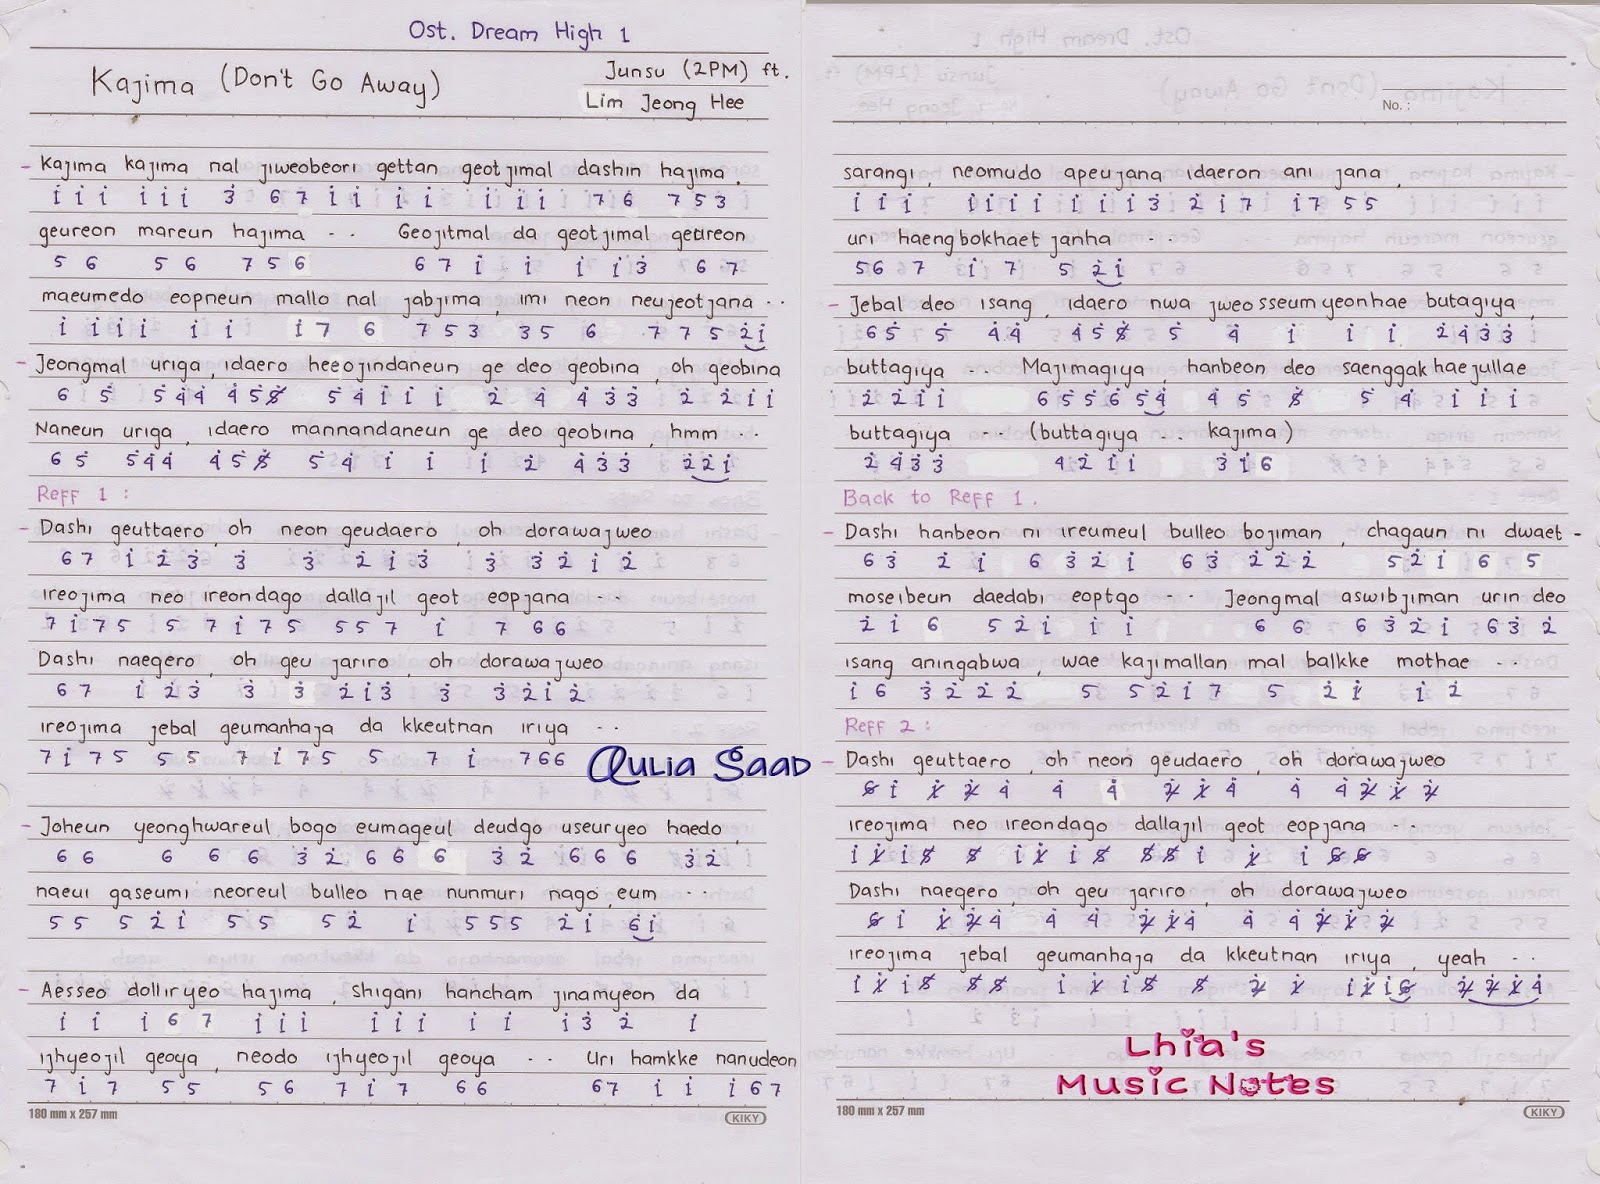 Ost. Dream High 1
Kajima (Don't Go Away)
Junsu (2PM) ft.
Lim Jeong Hee
- Kajima kajima nal jiweobeori gettan geotjimal dashin hajima,
1̇ 1̇ 1̇ 1̇ 1̇ 1̇ 3̇ 6 7 1̇ 1̇ 1̇ 1̇ 1̇ 1̇ 1̇ 7 6 7 5 3
geureon mareun hajima .. Geojitmal da geotjimal geureon
5 6 5 6 7 5 6 6 7 1̇ 1̇ 1̇ 1̇ 3̇ 6 7
maeumedo eopneun mallo nal jabjima, imi neon neujeotjana ..
1̇ 1̇ 1̇ 1̇ 1̇ 1̇ 1̇ 7 6 7 5 3 3 5 6 7 7 5 2̇ 1̇
- Jeongmal uriga, idaero heeojindaneun ge deo geobina, oh geobina
6 5̇ 5̇ 4̇ 4̇ 4̇ 5̇ 5̸̇ 5̇ 4̇ 1̇ 1̇ 1̇ 2̇ 4̇ 4̇ 3̇ 3̇ 2̇ 2̇ 1̇ 1̇
Naneun uriga, idaero mannandaneun ge deo geobina, hmm ...
6 5̇ 5̇ 4̇ 4̇ 4̇ 5̇ 5̸̇ 5̇ 4̇ 1̇ 1̇ 1̇ 2̇ 4̇ 3̇ 3̇ 2̇ 2̇ 1̇
Reff 1 :
- Dashi geuttaero, oh neon geudaero, oh dorawajweo
6 7 1̇ 2̇ 3̇ 3̇ 3̇ 2̇ 1̇ 3̇ 3̇ 3̇ 2̇ 1̇ 2̇
ireojima neo ireondago dallajil geot eopjana ...
7 1̇ 7 5 5 7 1̇ 7 5 5 5 7 1̇ 7 6 6
Dashi naegero, oh geu jariro, oh dorawajweo
6 7 1̇ 2̇ 3̇ 3̇ 3̇ 2̇ 1̇ 3̇ 3̇ 3̇ 2̇ 1̇ 2̇
ireojima jebal geumanhaja da kkeutnan iriya ..
7 1̇ 7 5 5 5 7 1̇ 7 5 5 7 1̇ 7 6 6
Aulia Saad
- Joheun yeonghwareul bogo eumageul deudgo useuryeo haedo,
6 6 6 6 6 3̇ 2̇ 6 6 6 3̇ 2̇ 6 6 6 3̇ 2̇
naeui gaseumi neoreul bulleo nae nunmuri nago, eum ...
5 5 5 2̇ 1̇ 5 5 5 2̇ 1̇ 5 5 5 2̇ 1̇ 6 1̇
- Aesseo dolliryeo hajima, shigani hancham jinamyeon da
1̇ 1̇ 1̇ 6 7 1̇ 1̇ 1̇ 1̇ 1̇ 1̇ 1̇ 1̇ 1̇ 3̇ 2̇ 1̇
ijhyeojil geoya, neodo ijhyeojil geoya .. Uri hamkke nanudeon
7 1̇ 7 5 5 5 6 7 1̇ 7 6 6 6 7 1̇ 1̇ 1̇ 6 7
180 mm x 257 mm
KIKY
No. :
sarangi, neomudo apeujana idaeron ani jana,
1̇ 1̇ 1̇ 1̇ 1̇ 1̇ 1̇ 1̇ 1̇ 1̇ 3̇ 2̇ 1̇ 7 1̇ 7 5 5
uri haengbokhaetjanha ...
5 6 7 1̇ 7 5 2̇ 1̇
- Jebal deo isang, idaero nwa jweosseumyeonhae butagiya,
6 5̇ 5̇ 4̇ 4̇ 4̇ 5̇ 5̸̇ 5̇ 4̇ 1̇ 1̇ 1̇ 2̇ 4̇ 3̇ 3̇
buttagiya ... Majimagiya, hanbeon deo saenggakhaejullae
2̇ 2̇ 1̇ 1̇ 6 5̇ 5̇ 6̇ 5̇ 4̇ 4̇ 5̇ 5̸̇ 5̇ 4̇ 1̇ 1̇ 1̇
buttagiya ... (buttagiya .. kajima)
2̇ 4̇ 3̇ 3̇ 4̇ 2̇ 1̇ 1̇ 3̇ 1̇ 6
Back to Reff 1.
- Dashi hanbeon ni ireumeul bulleo bojiman, chagaun ni dwaet -
6 3̇ 2̇ 1̇ 6 3̇ 2̇ 1̇ 6 3̇ 2̇ 2̇ 2̇ 5 2̇ 1̇ 6 5
moseibeun daedabi eoptgo ... Jeongmal aswibjiman urin deo
2̇ 1̇ 6 5 2̇ 1̇ 1̇ 1̇ 6 6 6 3̇ 2̇ 1̇ 6 3̇ 2̇
isang aningabwa, wae kajimallan mal balkke mothae ...
1̇ 6 3̇ 2̇ 2̇ 2̇ 5 5 2̇ 1̇ 7 5 2̇ 1̇ 1̇ 2̇
Reff 2 :
- Dashi geuttaero, oh neon geudaero, oh dorawajweo
6̸ 1̇ 1̸̇ 2̸̇ 4̇ 4̇ 4̇ 2̸̇ 1̸̇ 4̇ 4̇ 4̇ 2̸̇ 1̸̇ 2̸̇
ireojima neo ireondago dallajil geot eopjana ...
1̇ 1̸̇ 1̇ 5̸ 5̸ 1̇ 1̸̇ 1̇ 5̸ 5̸ 5̸ 1̇ 1̸̇ 1̇ 6̸ 6̸
Dashi naegero, oh geu jariro, oh dorawajweo
6̸ 1̇ 1̸̇ 2̸̇ 4̇ 4̇ 4̇ 2̸̇ 1̸̇ 4̇ 4̇ 4̇ 2̸̇ 1̸̇ 2̸̇
ireojima jebal geumanhaja da kkeutnan iriya, yeah ..
1̇ 1̸̇ 1̇ 5̸ 5̸ 5̸ 1̇ 1̸̇ 1̇ 5̸ 5̸ 2̸̇ 1̸̇ 1̇ 1̸̇ 1̇ 6̸ 2̸̇ 2̸̇ 1̸̇ 4̇
Lhia's
Music Notes
180 mm x 257 mm
KIKY